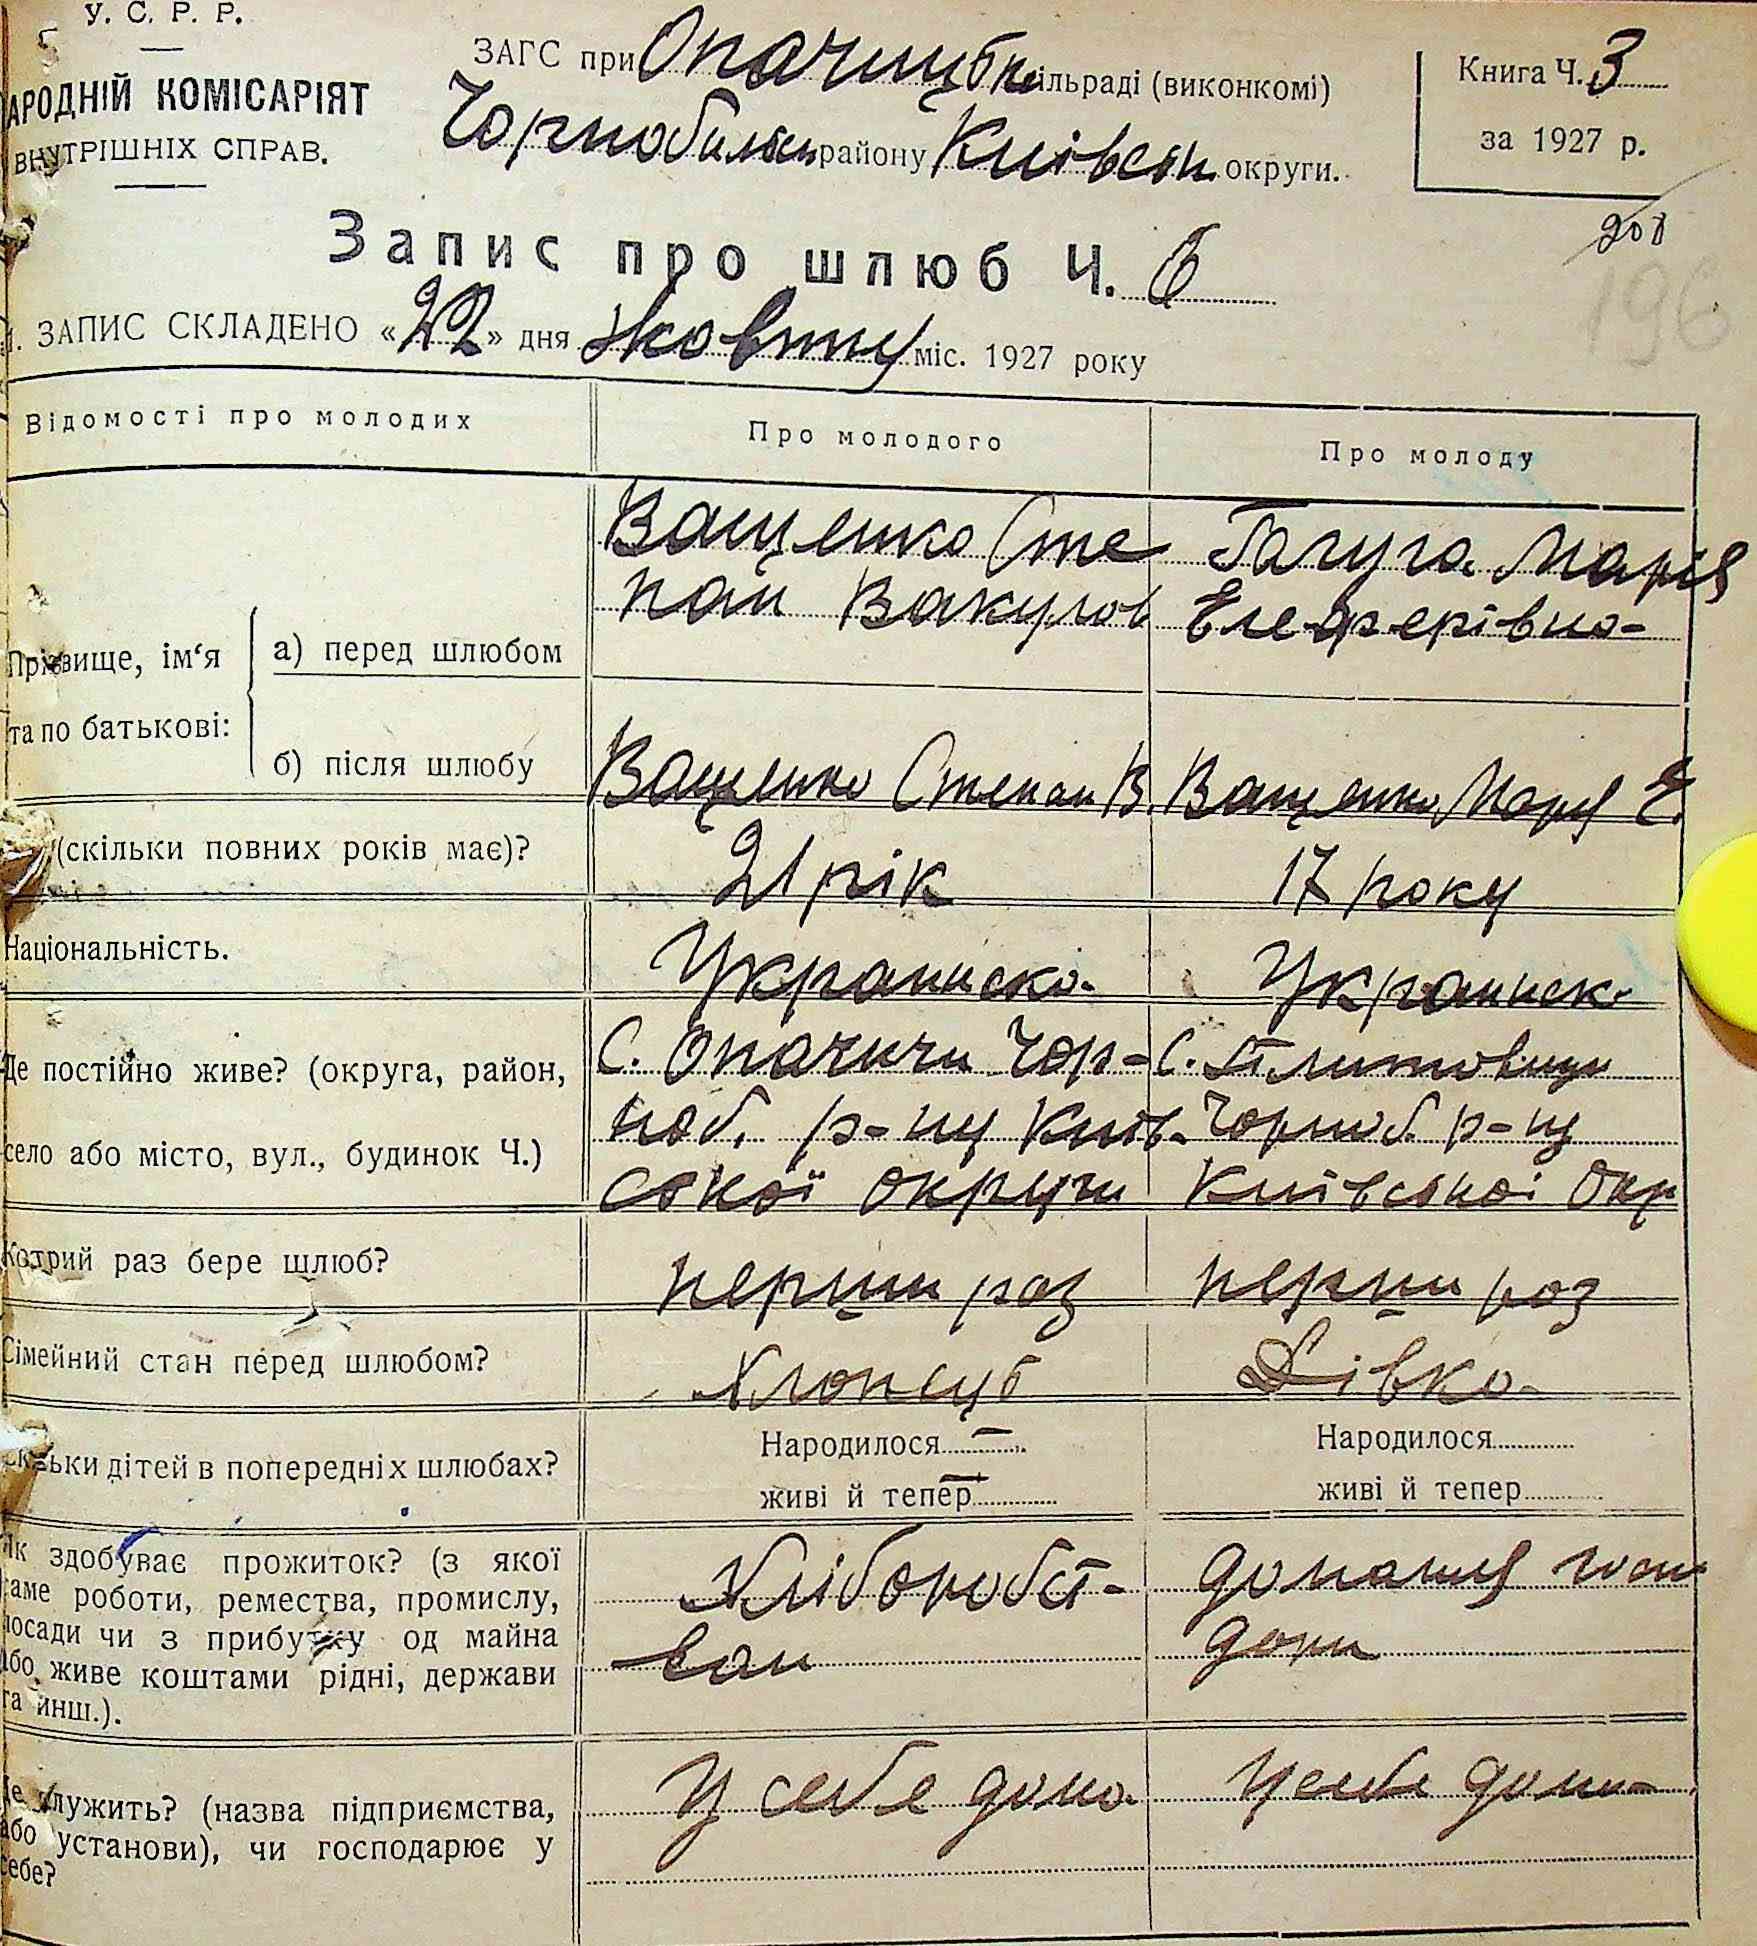 У. С. Р. Р.
АРОДНІЙ КОМІСАРІЯТ
ВНУТРІШНІХ СПРАВ.
ЗАГС при Опачицькій сільраді (виконкомі)
Чорнобильськ району Київськ округи.
Книга Ч. 3
за 1927 р.
201
196
Запис про шлюб Ч. 6
1. ЗАПИС СКЛАДЕНО «22» дня жовтня міс. 1927 року
Відомості про молодих Про молодого Про молоду
Прізвище, ім‘я та по батькові:
а) перед шлюбом
Ващенко Сте
пан Вакулов
Гачуга Марія
Елефєрівна-
б) після шлюбу
Ващенко Степан В. Ващенко Марія Е.
(скільки повних років має)? 21 рік 17 року
Національність. Украииска- Украииск-
Де постійно живе? (округа, район,
село або місто, вул., будинок Ч.)
С. Опачичи Чор-
ноб. р-ну Київ-
ської округи
С. Плитовищи
Чорноб. р-ну
Київської Окр
Котрий раз бере шлюб? перши раз перши раз
Сімейний стан перед шлюбом? Дівка-
Скільки дітей в попередніх шлюбах?
Народилося –
живі й тепер –
Народилося
живі й тепер
Як здобуває прожиток? (з якої
саме роботи, ремества, промислу,
посади чи з прибутку од майна
або живе коштами рідні, держави
та инш.).
Хліборобст-
вом
домашня госп
дори
Де служить? (назва підприємства,
або установи), чи господарює у
себе?
У себе дома- У себе дома-